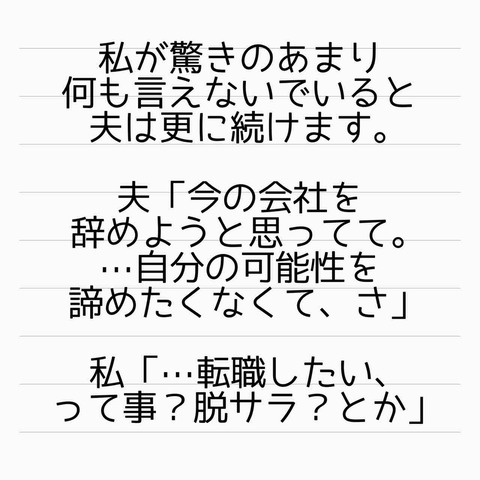 私が驚きのあまり
何も言えないでいると
夫は更に続けます。
夫「今の会社を
辞めようと思ってて。
…自分の可能性を
諦めたくなくて、さ」
私「…転職したい、
って事？脱サラ？とか」